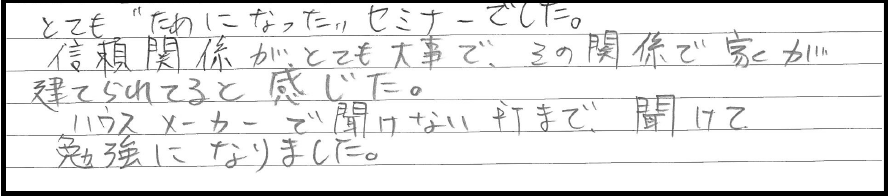 とても〝ために なった〟セミナーでした。
信頼関係が、とても大事で、その関係で家が
建てられてると感じた。
ハウスメーカーで聞けない所まで、聞けて
勉強になりました。